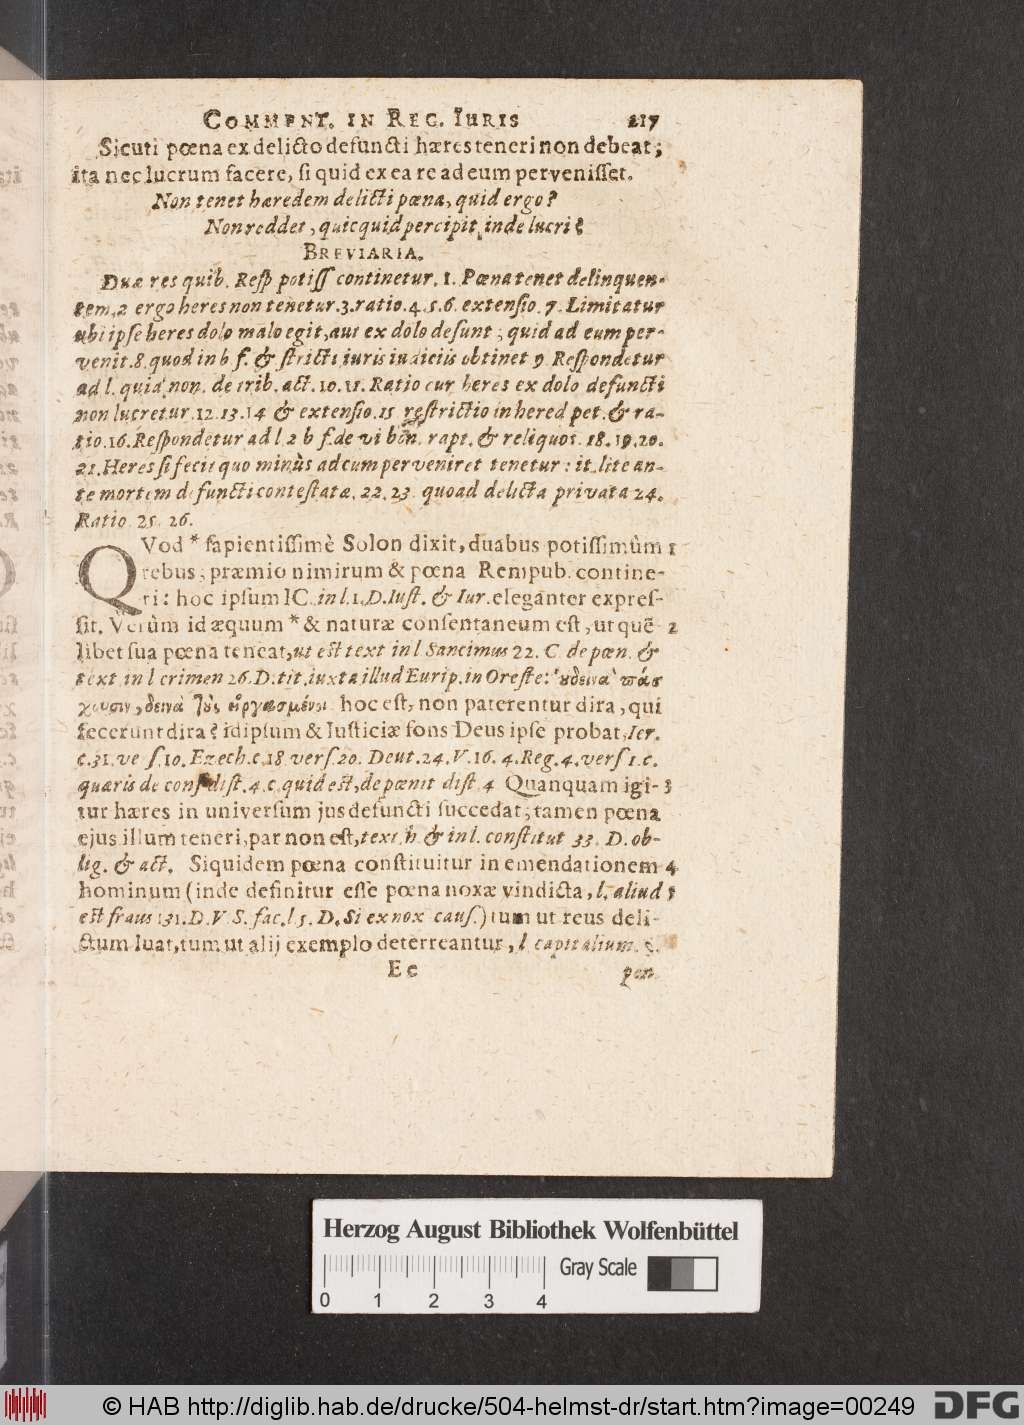 COMMENT. IN REG. IURIS 217
Sicuti pœna ex delicto defuncti hæres teneri non debeat;
ita nec lucrum facere, si quid ex ea re ad eum pervenisset.
Non tenet hæredem delicti pœna, quid ergo?
Non reddet, quicquid percipit inde lucri?
BREVIARIA.
Duæ res quib. Resp potiss continetur. 1. Pœna tenet delinquen-
tem, 2 ergo heres non tenetur. 3. ratio. 4. 5. 6. extensio. 7. Limitatur
ubi ipse heres dolo malo egit, aut ex dolo defunt; quid ad eum per-
venit. 8. quod in b f. & stricti iuris iudiciis obtinet 9. Respondetur
ad l. quia non. de trib. act. 10. 11. Ratio cur heres ex dolo defuncti
non lucretur. 12. 13. 14 & extensio. 15 restrictio in hered pet. & ra-
tio. 16. Respondetur ad l 2 b f. de vi bon. rapt. & reliquos. 18. 19. 20.
21. Heres si fecit quo minùs ad eum perveniret tenetur: it. lite an-
te mortem defuncti contestatæ. 22. 23. quoad delicta privata 24.
Ratio 25. 26.
QVod * sapientissimè Solon dixit, duabus potissimùm 1
rebus, præmio nimirum & pœna Rempub. contine-
ri: hoc ipsum IC. in l. 1. D. Iust. & Iur. eleganter expres-
sit. Verùm id æquum * & naturæ consentaneum est, ut quē- 2
libet sua pœna teneat, ut est text in l Sancimus 22. C. de pœn. &
text in l crimen 26. D. tit. iuxta illud Eurip. in Oreste:
hoc est, non paterentur dira, qui
fecerunt dira? idipsum & Iusticiæ fons Deus ipse probat, Ier.
c. 31. ve s. 10. Ezech. c. 18 vers. 20. Deut. 24. V. 16. 4. Reg. 4. vers 1. c.
quæris de cons dist. 4. c. quid est, de pœnit dist. 4 Quanquam igi- 3
tur hæres in universum jus defuncti succedat; tamen pœna
ejus illum teneri, par non est, text. h. & in l. constitut 33. D. ob-
lig. & act. Siquidem pœna constituitur in emendationem 4
hominum (inde definitur esse pœna noxæ vindicta, l. aliud 5
est fraus 131. D. V. S. fac. l 5. D. Si ex nox caus.) tum ut reus deli-
ctum luat, tum ut alij exemplo deterreantur, l capitalium. §.
Ee pœn
Herzog August Bibliothek Wolfenbüttel
Gray Scale
0 1 2 3 4
© HAB http://diglib.hab.de/drucke/504-helmst-dr/start.htm?image=00249
DFG